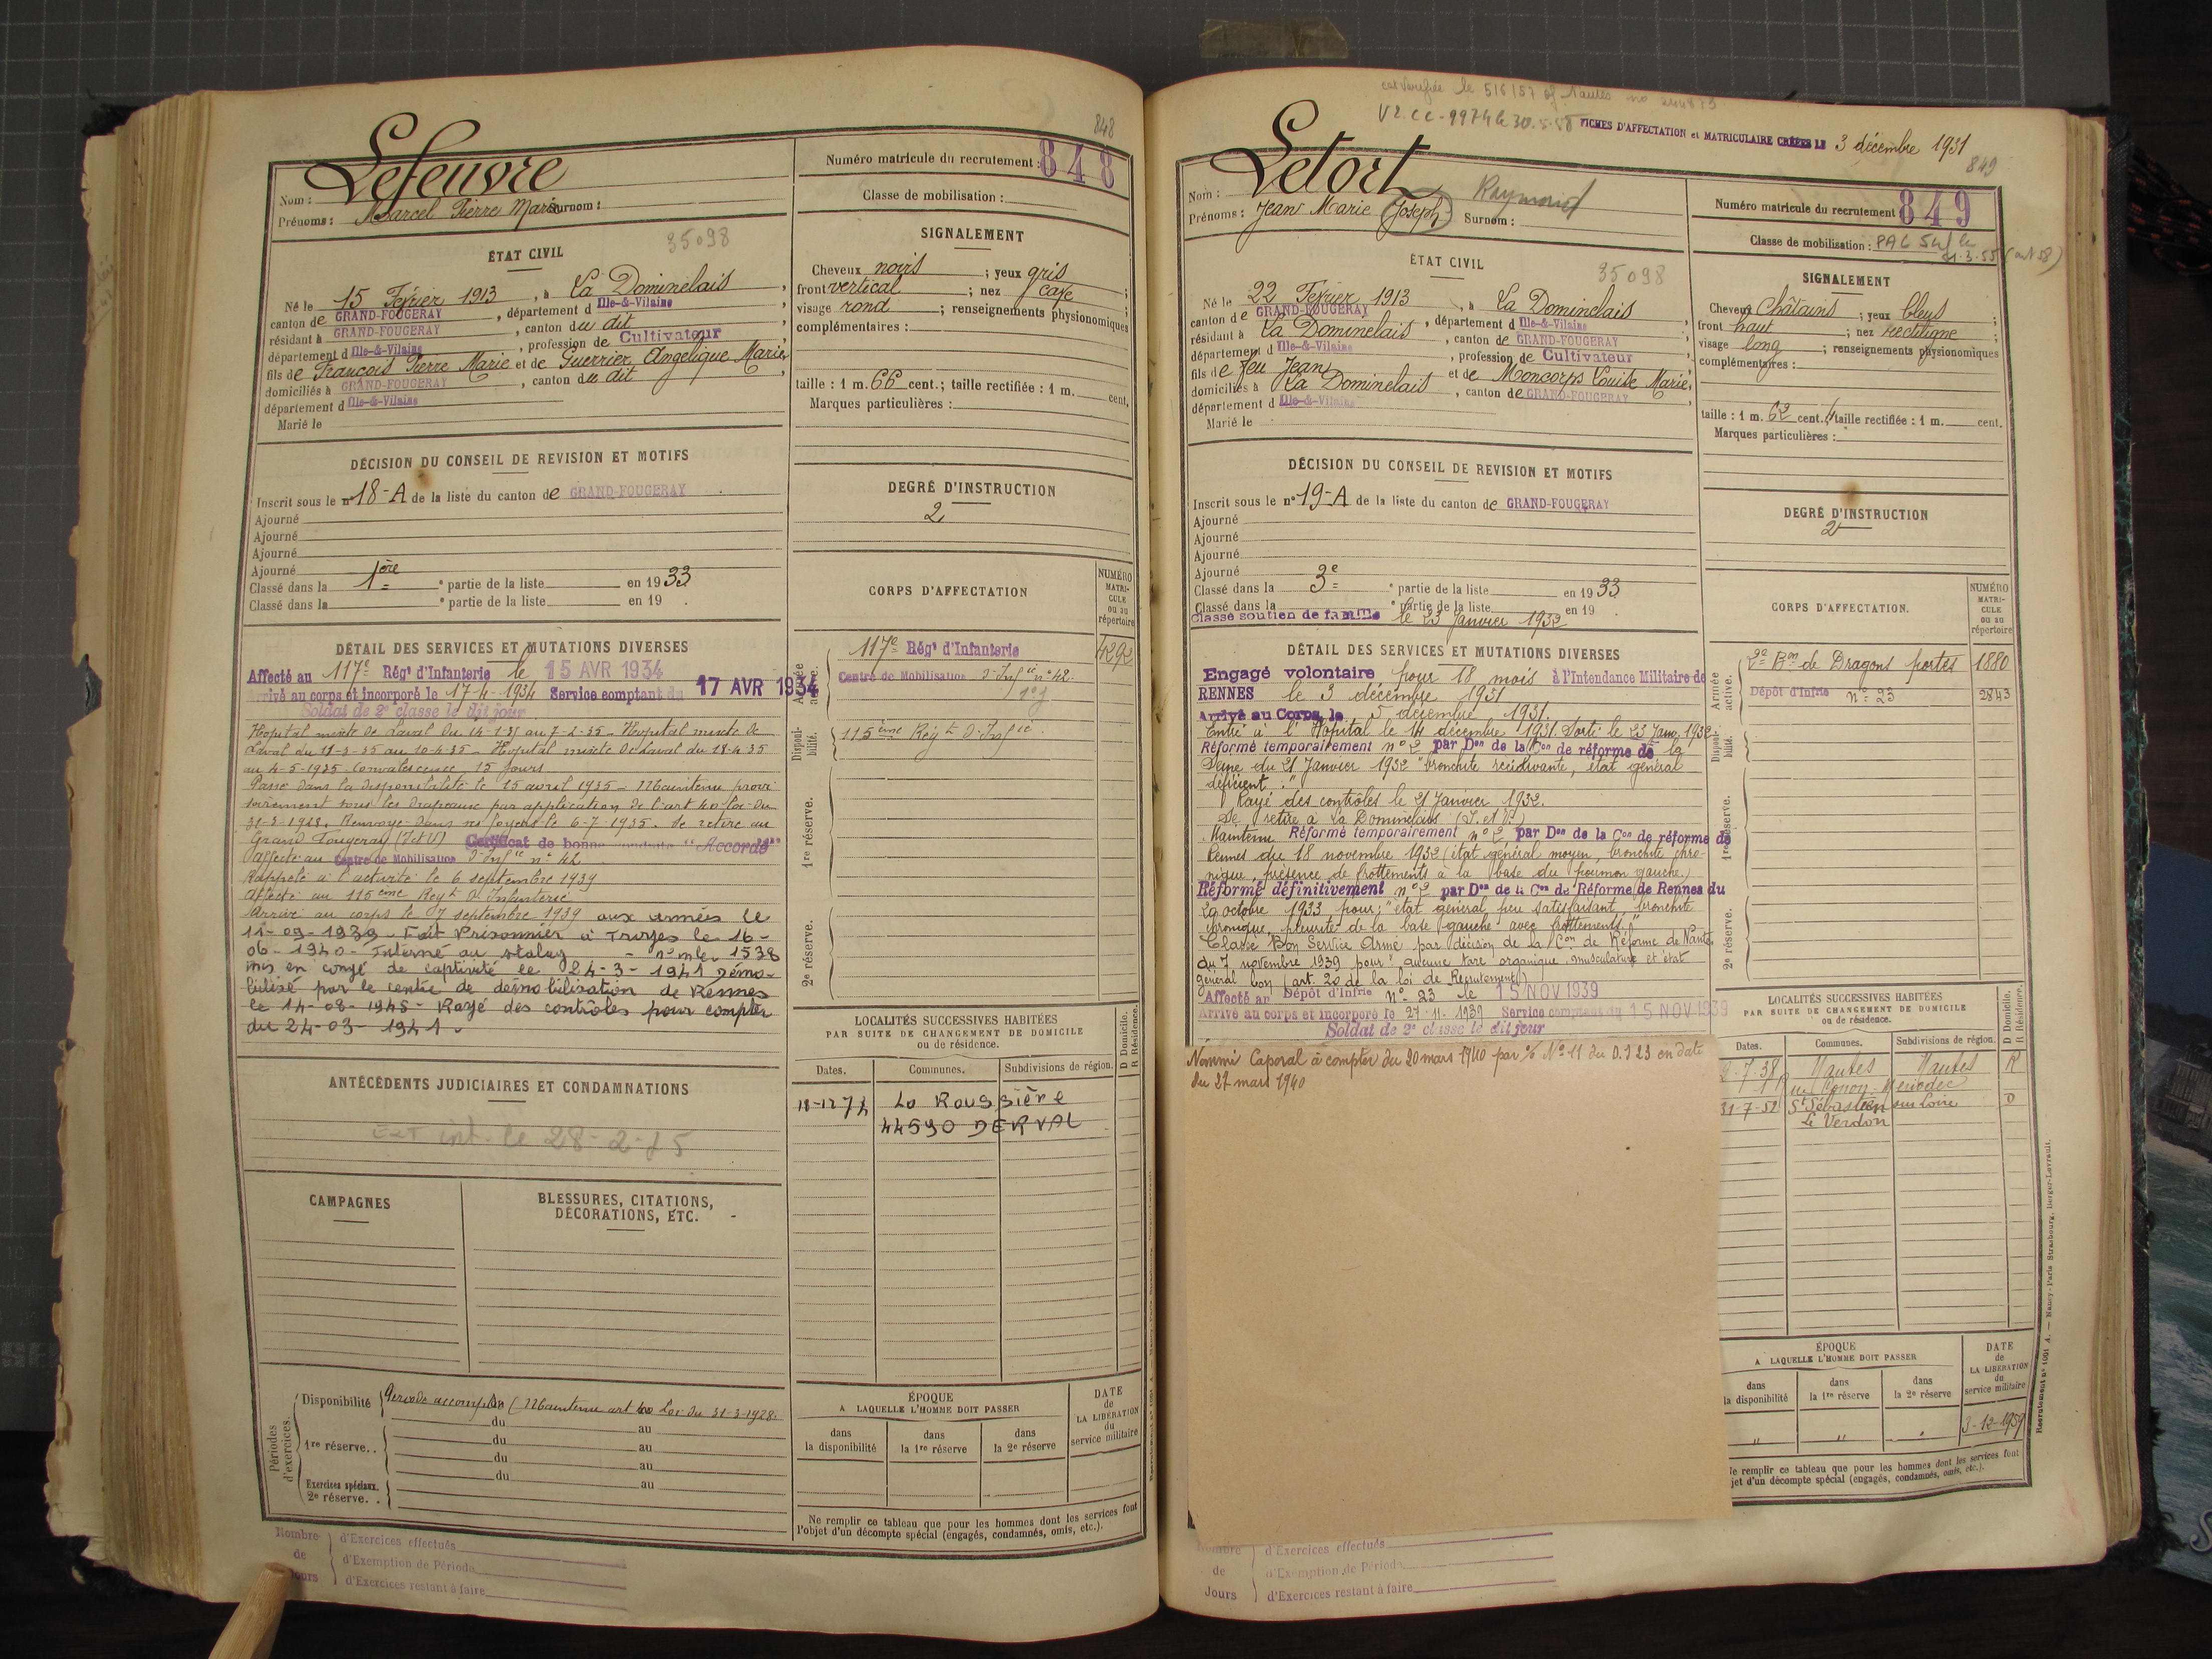 848
Lefeuvre
Nom :
Prénoms : Marcel Pierre Marie Surnom :
Numéro matricule du recrutement : 848
Classe de mobilisation :
ÉTAT CIVIL
35098
Né le 15 Février 1913, à La Dominelais,
canton de GRAND-FOUGERAY, département d Ille-&-Vilaine
résidant à GRAND-FOUGERAY, canton du dit
département d Ille-&-Vilaine, profession de Cultivateur
fils de François Pierre Marie et de Guerrier Angélique Marie,
domiciliés à GRAND-FOUGERAY, canton du dit
département d Ille-&-Vilaine
Marié le
SIGNALEMENT
Cheveux noirs ; yeux gris
front vertical ; nez cave ;
visage rond ; renseignements physionomiques
complémentaires :
taille : 1 m. 66 cent.; taille rectifiée : 1 m. cent.
Marques particulières :
DÉCISION DU CONSEIL DE REVISION ET MOTIFS
Inscrit sous le n° 18-A de la liste du canton de GRAND-FOUGERAY.
Ajourné
Ajourné
Ajourné
Ajourné
Classé dans la 1ère partie de la liste en 1933
Classé dans la ° partie de la liste en 19 .
DEGRÉ D'INSTRUCTION
2
CORPS D'AFFECTATION
NUMÉRO MATRI-CULE ou au répertoire
Armée active.
117e Régt d'Infanterie 4292
Centre de Mobilisation d'Infie n° 42
Disponi-bilité.
115ème Régt d'Infie
1re réserve.
2e réserve.
DÉTAIL DES SERVICES ET MUTATIONS DIVERSES
Affecté au 117e Régt d'Infanterie le 15 AVR 1934
Arrivé au corps et incorporé le 17-4-1934 Service comptant du 17 AVR 1934
Soldat de 2e classe le dit jour
Hopital mixte de Laval du 14-1-35 au 7-2-35 - Hopital mixte de
Laval du 18-3-35 au 10-4-35 - Hopital mixte de Laval du 18-4-35
au 4-5-1935. Convalescence 15 jours
Passé dans la disponibilité le 15 avril 1935 - Maintenu provi
soirement sous les drapeaux par application de l'art 40 loi du
31-3-1928. Renvoyé dans ses foyers le 6-7-1935. Se retire au
Grand Fougeray (I et V) Certificat de bonne conduite "Accordé"
Affecté au Centre de Mobilisation d'Infie n° 42
Rappelé à l'activité le 6 septembre 1939
Affecté au 115ème Régt d'Infanterie
Arrivé au corps le 7 septembre 1939 aux armées le
11-09-1939 - Fait Prisonnier à Troyes le 16-
06-1940 - Interné au stalag - n° mle 1538
mis en congé de captivité le 24-3-1941 Démo-
bilisé par le centre de démobilisation de Rennes
le 14-08-1945 - Rayé des contrôles pour compter
du 24-03-1941.
ANTÉCÉDENTS JUDICIAIRES ET CONDAMNATIONS
int. le 28-2-75
LOCALITÉS SUCCESSIVES HABITÉES
PAR SUITE DE CHANGEMENT DE DOMICILE
ou de résidence.
D Domicile. R Résidence.
Dates. Communes. Subdivisions de région.
18-12-74 La Roussière
44590 DERVAL
CAMPAGNES
BLESSURES, CITATIONS,
DÉCORATIONS, ETC.
Périodes d'exercices.
Disponibilité Période accomplie (Maintenu art 40 Loi du 31-3-1928.
du au
1re réserve.. du au
du au
Exercices spéciaux. du au
2e réserve..
ÉPOQUE
A LAQUELLE L'HOMME DOIT PASSER
dans la disponibilité
dans la 1re réserve
dans la 2e réserve
DATE de LA LIBÉRATION du service militaire
Ne remplir ce tableau que pour les hommes dont les services font
l'objet d'un décompte spécial (engagés, condamnés, omis, etc.).
Nombre de Jours
d'Exercices effectués
d'Exemption de Période
d'Exercices restant à faire
le 5/6/57 Nantes
V2. CC-9974 le 30.5.58
FICHES D'AFFECTATION et MATRICULAIRE CRÉÉES LE 3 décembre 1931
849
Letort
Raymond
Nom :
Prénoms : Jean Marie Joseph Surnom :
Numéro matricule du recrutement 849
Classe de mobilisation :
ÉTAT CIVIL
35098
Né le 22 Février 1913, à La Dominelais
canton de GRAND-FOUGERAY, département d Ille-&-Vilaine
résidant à La Dominelais, canton de GRAND-FOUGERAY
département d Ille-&-Vilaine, profession de Cultivateur
fils de feu Jean et de Moncorps Louise Marie,
domiciliés à La Dominelais, canton de GRAND-FOUGERAY
département d Ille-&-Vilaine
Marié le
SIGNALEMENT
Cheveux Châtains ; yeux bleus
front haut ; nez rectiligne ;
visage long ; renseignements physionomiques
complémentaires :
taille : 1 m. 62 cent.; taille rectifiée : 1 m. cent.
Marques particulières :
DÉCISION DU CONSEIL DE REVISION ET MOTIFS
Inscrit sous le n° 19-A de la liste du canton de GRAND-FOUGERAY
Ajourné
Ajourné
Ajourné
Ajourné
Classé dans la 3e partie de la liste en 1933
Classé dans la ° partie de la liste en 19 .
Classé soutien de famille le 23 Janvier 1932
DEGRÉ D'INSTRUCTION
2
CORPS D'AFFECTATION.
NUMÉRO MATRI-CULE ou au répertoire
Armée active.
2e Bon de Dragons portés 1880
Dépôt d'Infie n° 23 2843
Disponi-bilité.
1re réserve.
2e réserve.
DÉTAIL DES SERVICES ET MUTATIONS DIVERSES
Engagé volontaire pour 18 mois à l'Intendance Militaire de
RENNES le 3 décembre 1931
Arrivé au Corps le 5 décembre 1931.
Entré à l'Hôpital le 14 décembre 1931. Sorti le 23 Janv. 1932
Réformé temporairement n° 2 par Don de la Con de réforme de la
Seine du 21 Janvier 1932 "bronchite récidivante, état général
déficient."
Rayé des contrôles le 21 Janvier 1932.
Se retire à La Dominelais (I. et V.)
Maintenu Réformé temporairement n° 2 par Don de la Con de réforme de
Rennes du 18 novembre 1932 (état général moyen, bronchite chro-
nique, présence de frottements à la base du poumon gauche.)
Réformé définitivement n° 2 par Don de la Con de Réforme de Rennes du
20 octobre 1933 pour : "état général peu satisfaisant bronchite
chronique, pleurite de la base gauche avec frottements."
Classé Bon Service Armé par décision de la Con de Réforme de Nantes
du 7 novembre 1939 pour "aucune tare organique, musculature et état
général bon (art. 20 de la loi de Recrutement)
Affecté au Dépôt d'Infie N° 23 le 15 NOV 1939
Arrivé au corps et incorporé le 27-11-1939 Service comptant du 15 NOV 1939
Soldat de 2e classe le dit jour
Nommé Caporal à compter du 20 mars 1940 par % N° 11 du D.I 23 en date
du 27 mars 1940
LOCALITÉS SUCCESSIVES HABITÉES
PAR SUITE DE CHANGEMENT DE DOMICILE
ou de résidence.
D Domicile. R Résidence.
Dates. Communes. Subdivisions de région.
-7-38 Nantes Nantes R
31-7-52 St Sébastien sur Loire D
Le Verdon
ÉPOQUE
A LAQUELLE L'HOMME DOIT PASSER
dans la disponibilité
dans la 1re réserve
dans la 2e réserve
DATE de LA LIBÉRATION du service militaire
" " " 3-12-1959
Ne remplir ce tableau que pour les hommes dont les services font
jet d'un décompte spécial (engagés, condamnés, omis, etc.).
Nombre de Jours
d'Exercices effectués
d'Exemption de Période
d'Exercices restant à faire
Recrutement n° 1001 A. — Nancy-Paris-Strasbourg, Berger-Levrault.